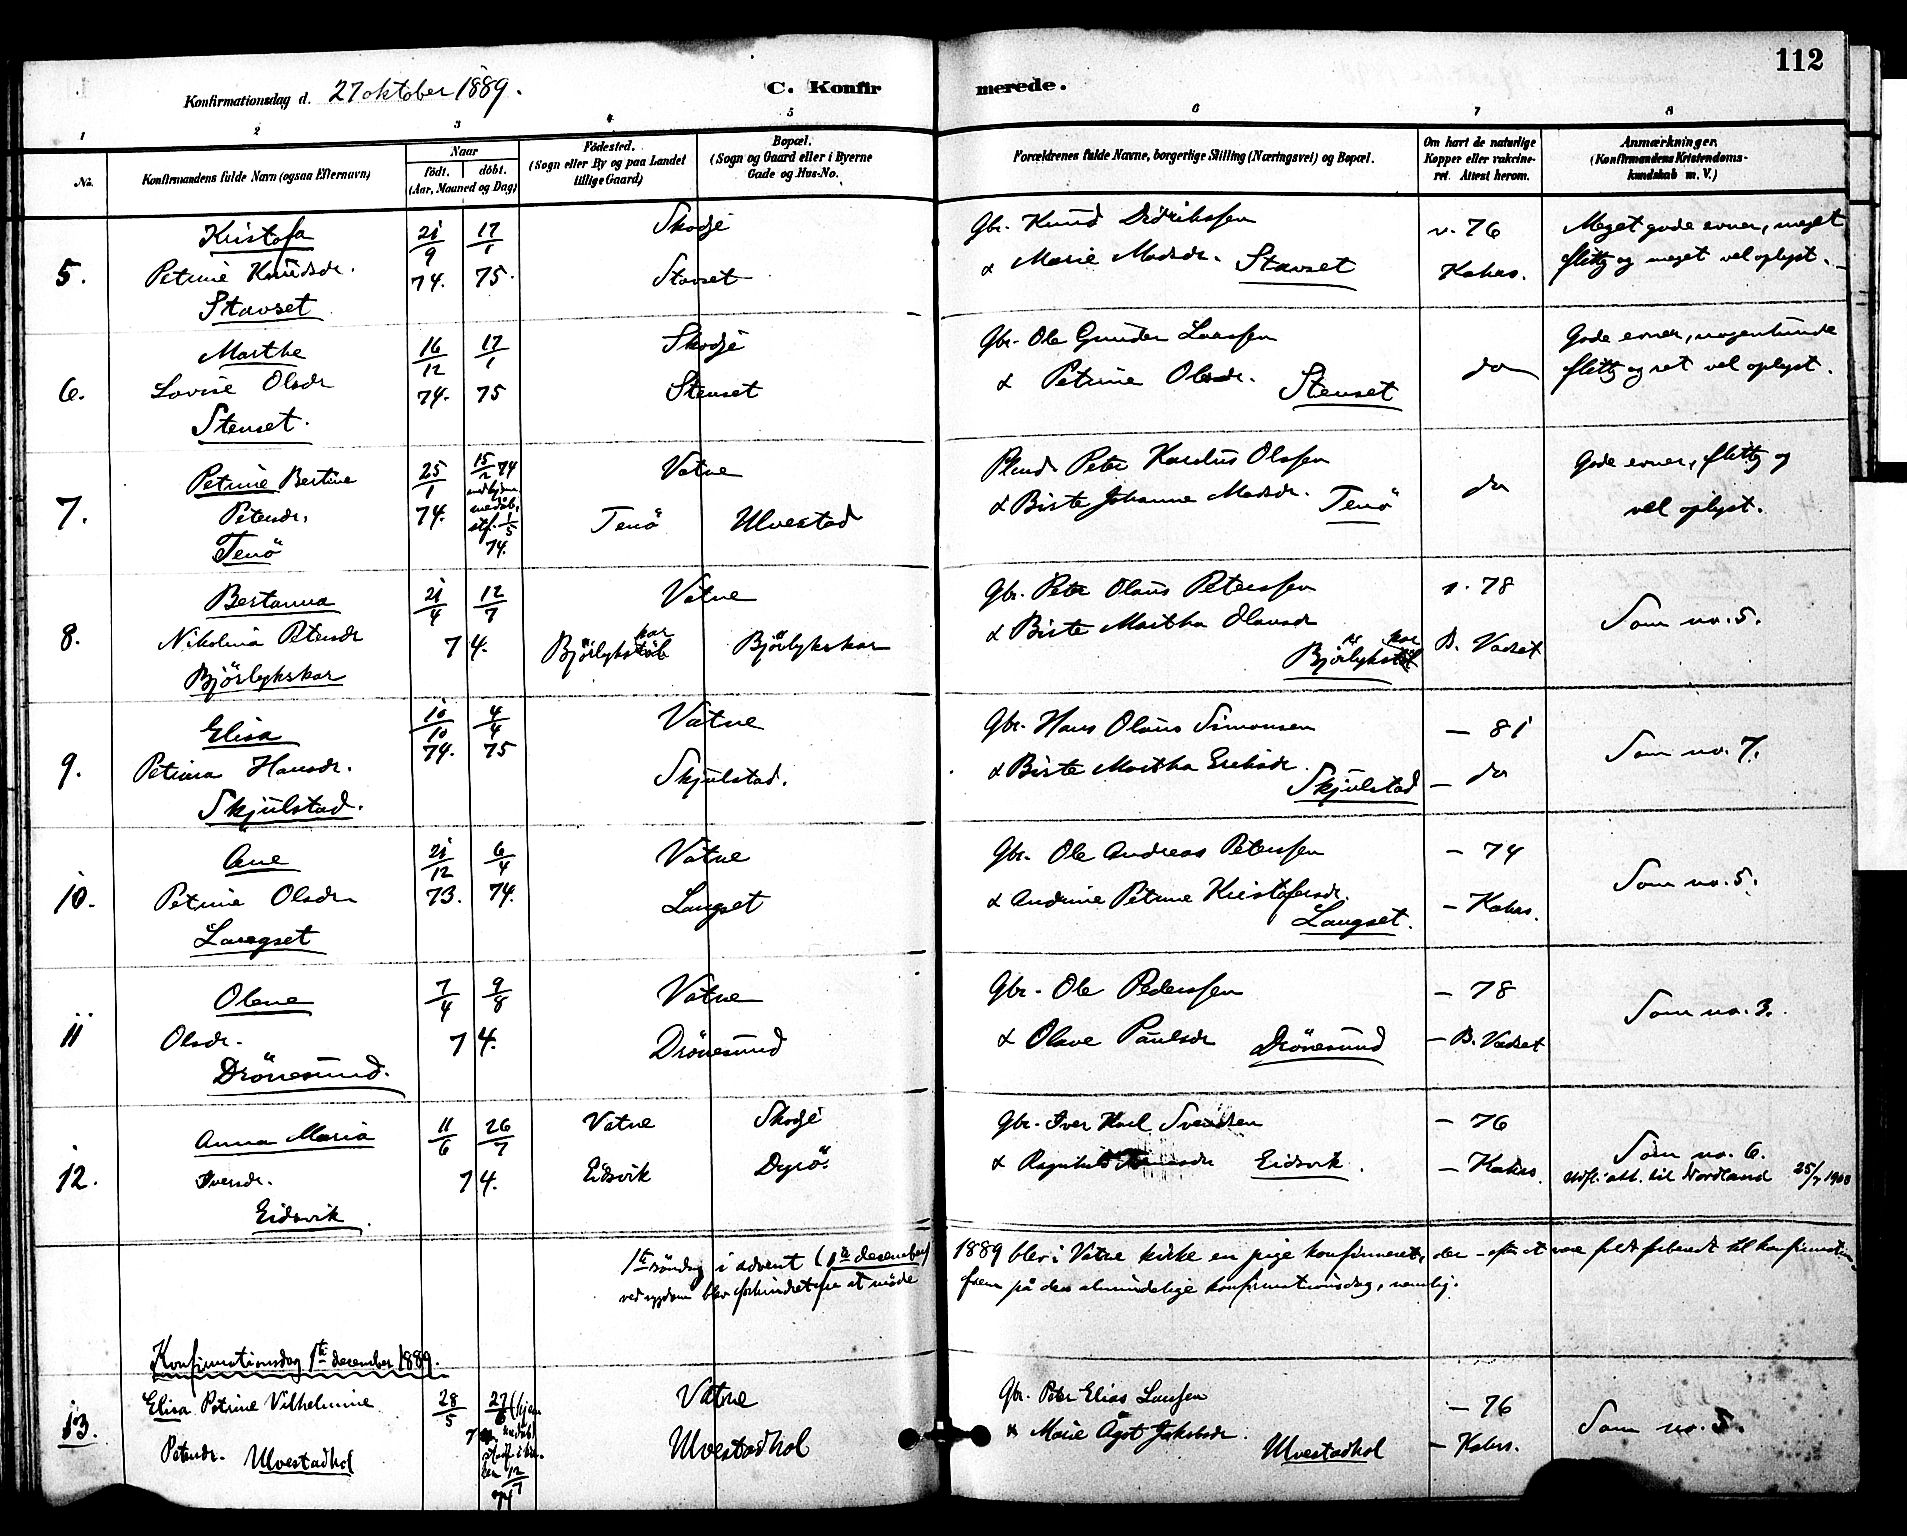 112
Konfirmationsdag d. 27 oktober 1889.
C. Konfirmerede.
1 2 3 4 5 6 7 8
No.
Konfirmandens fulde Navn (ogsaa Efternavn)
Naar
födt. döbt.
(Aar, Maaned og Dag)
Födested.
(Sogn eller By og paa Landet
tillige Gaard)
Bopæl.
(Sogn og Gaard eller i Byerne
Gade og Hus-No.
Forældrenes fulde Navne, borgerlige Stilling (Næringsvei) og Bopæl.
Om havt de naturlige
Kopper eller vakcine-
ret. Attest herom.
Anmærkninger.
(Konfirmandens Kristendoms-
kundskab m. V.)
Kristofa 21/9 17/1 Skodje Gbr. Knud Didrikssen v. 76 Meget gode evner, meget
5. Petrine Knudsdr. 74. 75. Stavset & Marie Madsdr. Stavset Kahrs. flittig og meget vel oplyst.
Stavset
Marthe 16/12 17/1 Skodje Gbr. Ole Gunder Larssen Gode evner, nogenlunde
6. Lovise Olsdr 74. 75 Stenset & Petrine Olsdr. Stenset do flittig og ret vel oplyst.
Stenset.
Petrine Bertine 25/1 15/2 74 Vatne Peter Karelius Olssen Gode evner, flittig og
7. Petersdr. 74. stf. 1/5 74. Tenö Ulvestad & Birte Johanne Madsdr. Tenö do vel oplyst.
Tenö
Bertanna 21/4 12/7 Vatne Gbr. Peter Olaus Peterssen v. 78
8. Nikolina Petersdr 74. Björlykskar Björlykskar & Birte Martha Olausdr Björlykskar B. Vadset Som no. 5.
Björlykskar
Elisa 10/10 4/4 Vatne Gbr. Hans Olaus Simonsen — 81
9. Petrina Hansdr. 74. 75 Skjulstad. & Birte Martha Eriksdr. Skjulstad — do Som no. 7.
Skjulstad.
Ane 21/12 6/4 Vatne Gbr. Ole Andreas Peterssen — 74
10. Petrine Olsdr 73. 74. Langset & Andrine Petrine Kristofersdr. Langset. — Kahrs. Som no. 5.
Langset
Olene 7/4 9/8 Vatne Gbr. Ole Pederssen — 78
11 Olsdr. 74. Drönesund & Olave Paulsdr Drönesund — B. Vadset Som no. 3.
Drönesund.
Anna Maria 11/6 26/7 Vatne Skodje Gbr. Iver Karl Svendsen — 76 Som no. 6.
12. Iversdr. 74. Eidsvik Dyrö. & Ragnhild Eidsvik. — Kahrs. Udfl. att. til Nordland 25/7 1900
Eidsvik.
1ste söndag i advent (1ste desember) 1889 blev i Vatne kirke en pige konfirmeret, der – efter at være forberedt til konfirmation
ved sygdom blev forhindret fra at möde frem på den almindelige konfirmationsdag, nemlig.
Konfirmationsdag 1ste desember 1889.
Elisa Petrine Vilhelmine 28/5 27/6 (hjem Vatne Gbr. Peter Elias Larssen — 76
13. Petersdr. Ulvestadhol 12/7 74 Ulvestadhol & Marie Ågot Jakobsdr. Ulvestadhol — Kahrs. Som no. 5.